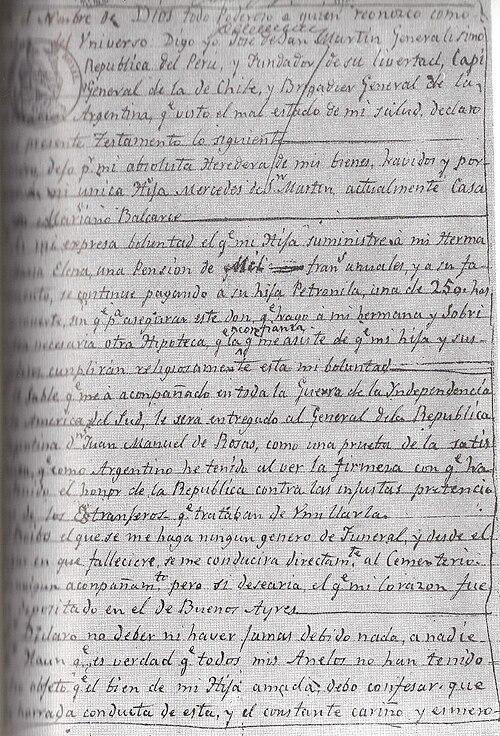 el Nombre de Dios todo Poderoso a quien reconozco como
del Universo: Digo yo José de San Martin, Generalisimo
Republica del Perú, y Fundador de su libertad, Capi
General de la de Chile, y Brigadier General de la
Argentina, qe visto el mal estado de mi salud, declaro
presente Testamento lo siguiente
dejo pr mi absoluta Heredera de mis bienes, havidos y por
mi unica Hija Mercedes de Sn Martin actualmente Casa
Mariano Balcarce
mi expresa boluntad el qe mi Hija suministre a mi Herma
Maria Elena, una Pension de Mil frans anuales, y a su fa
to, se continue pagando a su hija Petronila, una de 250 has
muerte, sin qe pa asegurar este don qe hago a mi hermana y Sobri
necesaria otra Hipoteca, qe la confianza qe me asiste de qe mi hija y sus
cumplirán religiosamente esta mi boluntad
El Sable qe me á acompañado en toda la Guerra de la Independencia
America del Sud, le será entregado al General de la Republica
Argentina Dn Juan Manuel de Rosas, como una prueba de la satis
qe como Argentino he tenido al ver la firmeza con qe ha
el honor de la Republica contra las injustas pretencio
de los Extranjeros qe trataban de Umillarla.
el que se me haga ningun genero de Funeral, y desde el
en que falleciere, se me conducirá directamte al Cementerio
ningun acompañamto pero si desearia, el qe mi Corazon fue
depositado en el de Buenos Ayres
Declaro no deber ni haver jamas debido nada, a nadie
Haun qe es verdad qe todos mis Anelos no han tenido
objeto qe el bien de mi Hija amada, debo confesar, que
honrrada conducta de esta, y el constante cariño y esmero